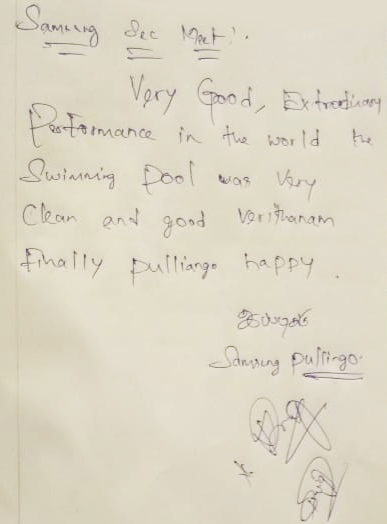 Samsung Sec Meet!.
Very Good, Extrodinary
Performance in the world the
Swimming Pool was Very
Clean and good Verithanam
Finally pulliango happy.
இப்படிக்கு
Samsung pullingo.